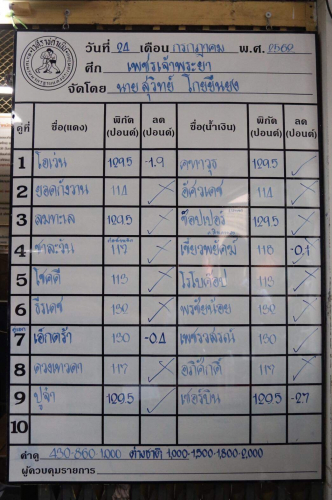 วันที่ 24 เดือน กรกฎาคม พ.ศ. 2562
ศึก เพชรเจ้าพระยา
จัดโดย นายสุวิทย์ โกยยืนยง
คู่ที่ ชื่อ(แดง) พิกัด (ปอนด์) ลด (ปอนด์) ชื่อ(น้ำเงิน) พิกัด (ปอนด์) ลด (ปอนด์)
1 โอเว่น 129.5 -1.9 คฑาวุธ 129.5
2 ยอดกังวาน 114 อัศวเดช 114
3 ลมทะเล 129.5 ช้อปเปอร์ 129.5
4 ชาละวัน 117 เขี้ยวพยัคฆ์ 118 -0.1
5 โชคดี 113 113
6 ธีรเดช 132 พรชัยน้อย 132
7 เอ็กตร้า 130 -0.4 เพชรวสรณ์ 130
8 ดวงเทวดา 117 อภิศักดิ์ 117
9 ปูจ๋า 129.5 เซอร์บิน 129.5 -2.7
10
ค่าดู 430-860-1,000 ต่างชาติ 1,000-1,500-1,800-2,000
ผู้ควบคุมรายการ